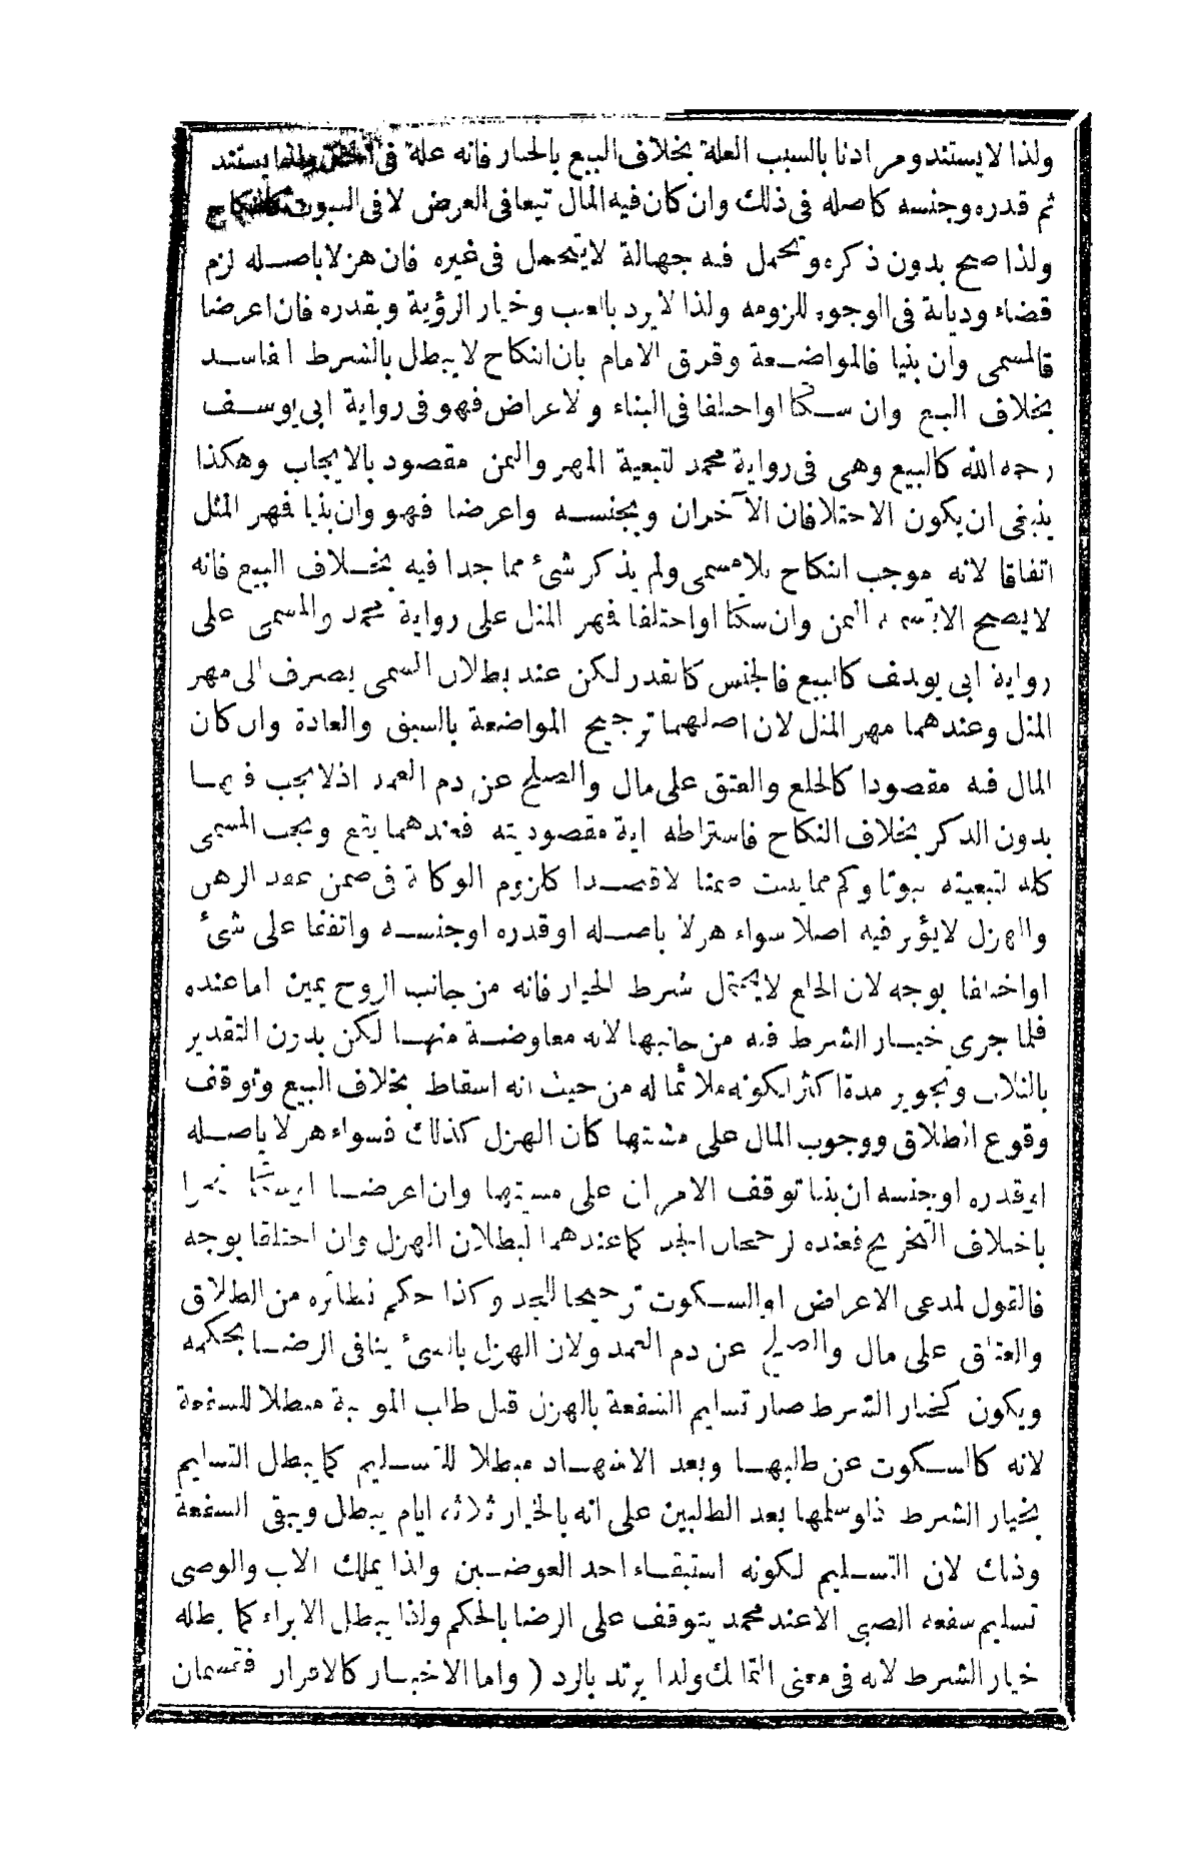 ولذا لا يستند ومرادنا بالسبب العلة بخلاف البيع بالخيار فانه علة فى يستند
ثم قدره وجنسه كاصله فى ذلك وان كان فيه المال تبعا فى العرض لا فى الثبوت كالنكاح
ولذا صح بدون ذكره وتحمل فيه جهالة لا يتحمل فى غيره فان هزلا باصله لزم
قضاء وديانة فى الوجوه للزومه ولذا لا يرد بالعيب وخيار الرؤية وبقدره فان اعرضا
فالمسمى وان بنيا فالمواضعة وفرق الامام بان النكاح لا يبطل بالشرط الفاسد
بخلاف البيع وان سكتا او اختلفا فى البناء والاعراض فهو فى رواية ابى يوسف
رحمه الله كالبيع وهى فى رواية محمد لتبعية المهر والثمن مقصود بالايجاب وهكذا
ينبغى ان يكون الاختلافان الآخران وبجنسه واعرضا فهو وان بنيا فمهر المثل
اتفاقا لانه موجب النكاح بلا مسمى ولم يذكر شئ مما جدا فيه بخلاف البيع فانه
لا يصح الا الثمن وان سكتا او اختلفا فمهر المثل على رواية محمد والمسمى على
رواية ابى يوسف كالبيع فالجنس كالقدر لكن عند بطلان المسمى يصرف الى مهر
المثل وعندهما مهر المثل لان اصلهما ترجيح المواضعة بالسبق والعادة وان كان
المال فيه مقصودا كالخلع والعتق على مال والصلح عن دم العمد اذ لا يجب فيها
بدون الذكر بخلاف النكاح فاشتراطه آية مقصوديته فعندهما يقع ويجب المسمى
كله لتبعيته ثبوتا وكم مما يثبت ضمنا لا قصدا كلزوم الوكالة فى ضمن عقد الرهن
والهزل لا يؤثر فيه اصلا سواء هزلا باصله او قدره او جنسه واتفقا على شئ
او اختلفا بوجه لان الخلع لا يحتمل شرط الخيار فانه من جانب الزوج يمين اما عنده
فلما جرى خيار الشرط فيه من جانبها لانه معاوضة منها لكن بدون التقدير
بالثلاث وتجويز مدة اكثر لكونه ملائما له من حيث انه اسقاط بخلاف البيع وتوقف
وقوع الطلاق ووجوب المال على مشيتها كان الهزل كذلك فسواء هزلا باصله
او قدره او جنسه ان بنيا توقف الامران على مشيتها وان اعرضا او سكتا
باختلاف التخريج فعنده لرجحان الجد كما عندهما لبطلان الهزل وان اختلفا بوجه
فالقول لمدعى الاعراض او السكوت ترجيحا للجد وكذا حكم نظائره من الطلاق
والعتاق على مال والصلح عن دم العمد ولان الهزل بالشئ ينافى الرضا بحكمه
ويكون كخيار الشرط صار تسليم الشفعة بالهزل قبل طلب المواثبة مبطلا للشفعة
لانه كالسكوت عن طلبها وبعد الاشهاد مبطلا للتسليم كما يبطل التسليم
بخيار الشرط فلو سلمها بعد الطلبين على انه بالخيار ثلاثة ايام يبطل ويبقى الشفعة
وذلك لان التسليم لكونه استبقاء احد العوضين ولذا يملك الاب والوصى
تسليم شفعة الصبى الا عند محمد يتوقف على الرضا بالحكم ولذا يبطل الابراء كما يبطله
خيار الشرط لانه فى معنى التمليك ولذا يرتد بالرد ( واما الاخبار كالاقرار فقسمان